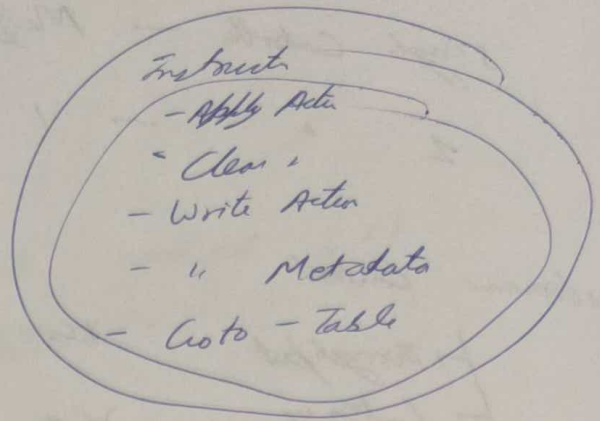 Instructn
- Apply Actn
" Clear "
- Write Action
- " Metadata
- Goto - Table